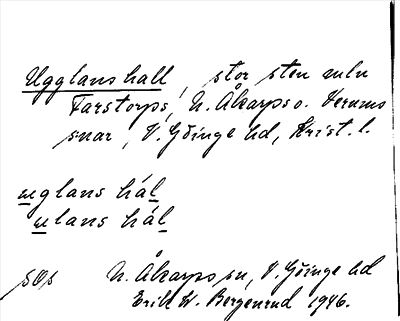 Ugglans hall, stor sten mln
Farstorps, N. Åkarps o. Verums
snar, V. Göinge hd, Krist. l.
uglans hál
ulans hál
sös N. Åkarps sn, V. Göinge hd
Erik W. Bergenrud 1946.